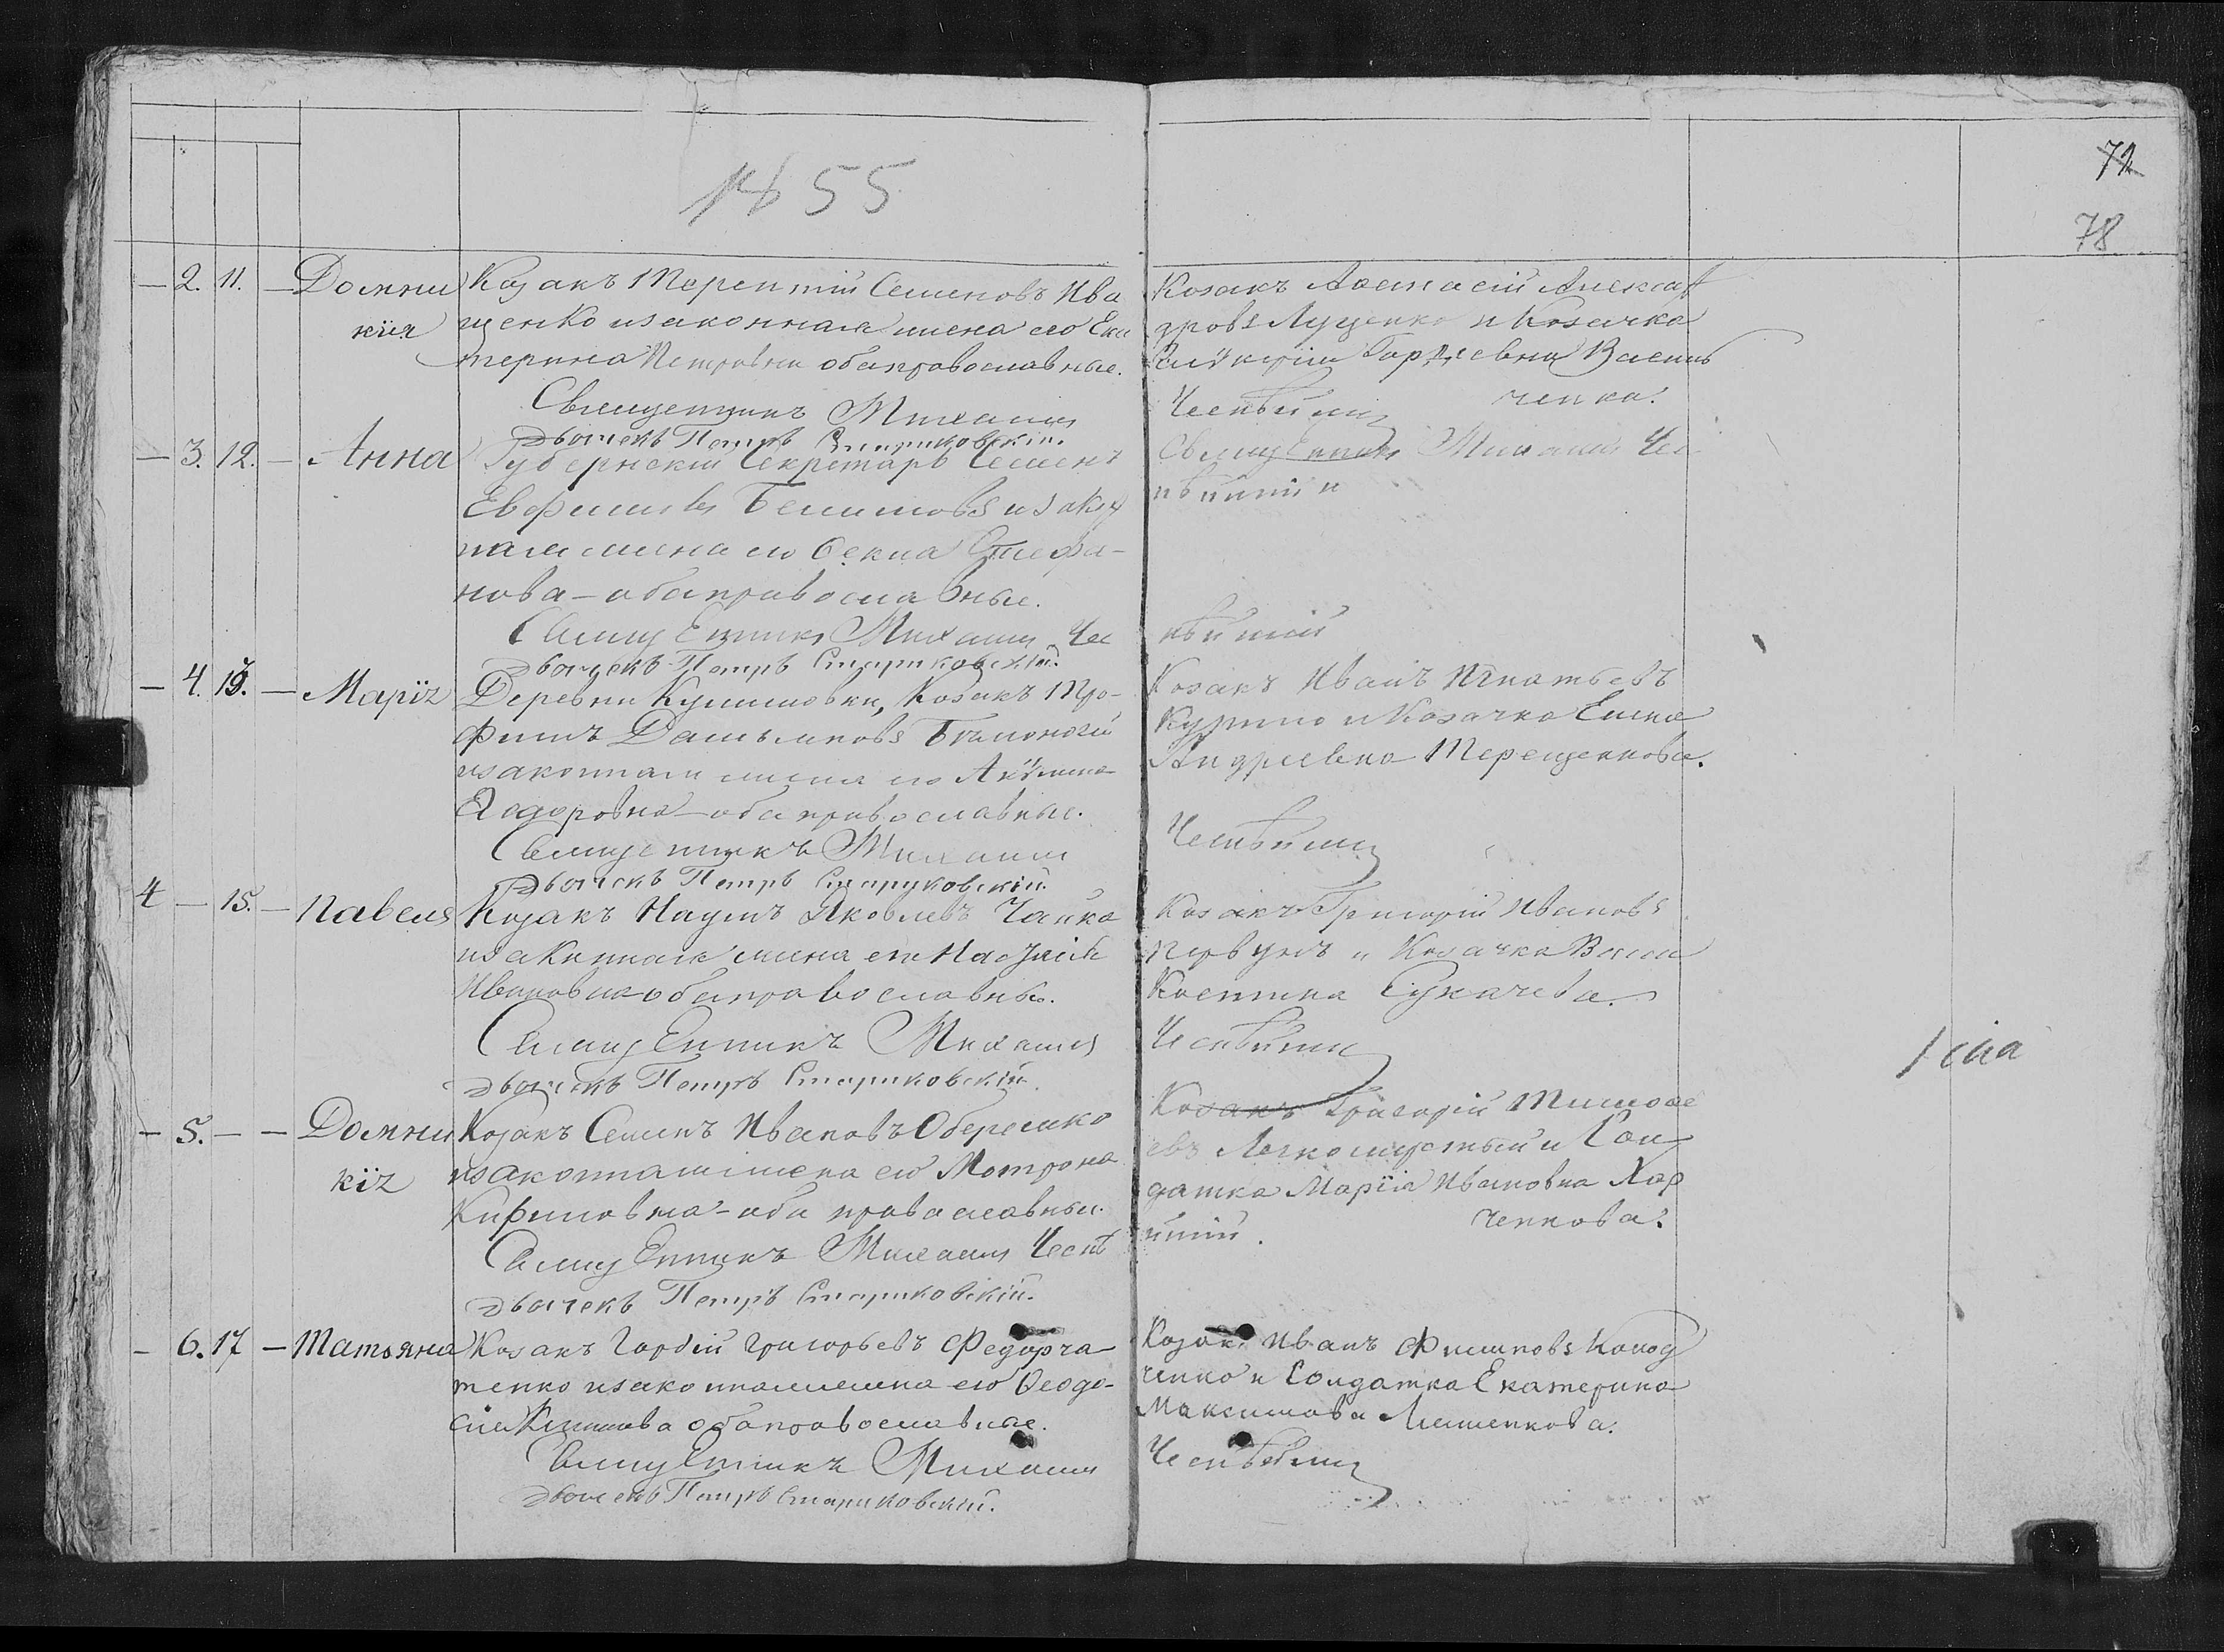 1855
72
78
— 2. 11. — Домни Козакъ Терентій Семеновъ Ива
кія щенко и законная жена его Ека
терина Петровна оба православные.
Священникъ Михаилъ
Дьячекъ Петръ Стариковскій.
Козакъ Афанасій Алексан
дровъ Луценко и Козачка
Гордѣевна Василь
ченко.
— 3. 12. — Анна Губернскій Секретарь Семенъ
Евфимовъ и закон
ная жена его Стефа-
нова — оба православные.
Священникъ Михаилъ Чес
Дьячекъ Петръ Стариковскій.
Священникъ Михаилъ Чес
— 4. 15. — Марія Деревни Куликовки, Козакъ Тро-
фимъ Демьяновъ Бѣлоногій
и законная жена его Акулина
Ѳедоровна — оба православные.
Священникъ Михаилъ
Дьячекъ Петръ Стариковскій.
Козакъ Иванъ Игнатьевъ
и Козачка Елена
Андреевна Терещенкова.
4 — 15. — Павелъ Козакъ Наумъ Яковлевъ Чайка
и законная жена его Настасія
Ивановна оба православные.
Священникъ Михаилъ
Дьячекъ Петръ Стариковскій.
Козакъ Григорій Ивановъ
Первунъ и Козачка Васса
Костина Сукачева.
— 5. — — Домни Козакъ Семенъ Ивановъ Оберемко
кія и законная жена его Мотрона
Кириловна — оба православные.
Священникъ Михаилъ Чесн
Дьячекъ Петръ Стариковскій.
Козакъ Григорій Тимофе
евъ и Сол
датка Марія Ивановна Хар
ченкова.
— 6. 17 — Татьяна Козакъ Гордій Григорьевъ Федорча-
тенко и законная жена его Ѳеодо-
сія оба православные.
Священникъ Михаилъ
Дьячекъ Петръ Стариковскій.
Козакъ Иванъ Филиповъ Колод
ченко и Солдатка Екатерина
Максимова Ляшенкова.